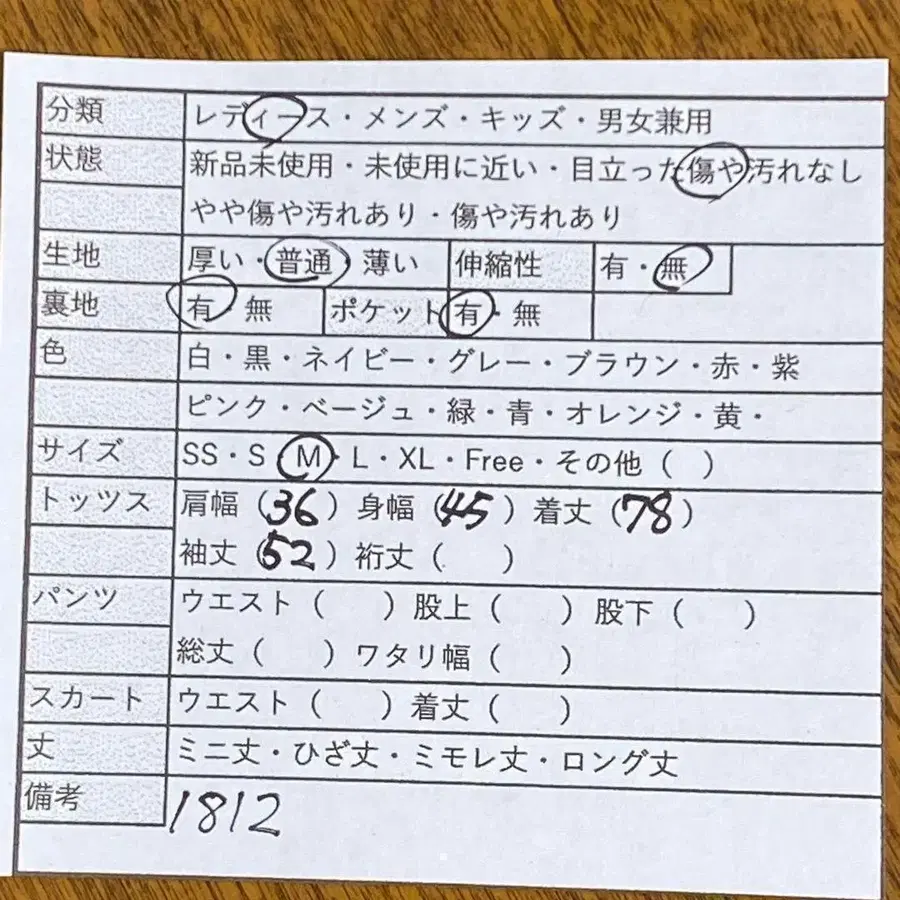 分類 レディース・メンズ・キッズ・男女兼用
状態 新品未使用・未使用に近い・目立った傷や汚れなし
やや傷や汚れあり・傷や汚れあり
生地 厚い・普通・薄い 伸縮性 有・無
裏地 有・無 ポケット 有・無
色 白・黒・ネイビー・グレー・ブラウン・赤・紫
ピンク・ベージュ・緑・青・オレンジ・黄・
サイズ SS・S・M・L・XL・Free・その他（ ）
トッツス 肩幅（36）身幅（45）着丈（78）
袖丈（52）裄丈（ ）
パンツ ウエスト（ ）股上（ ）股下（ ）
総丈（ ）ワタリ幅（ ）
スカート ウエスト（ ）着丈（ ）
丈 ミニ丈・ひざ丈・ミモレ丈・ロング丈
備考 1812